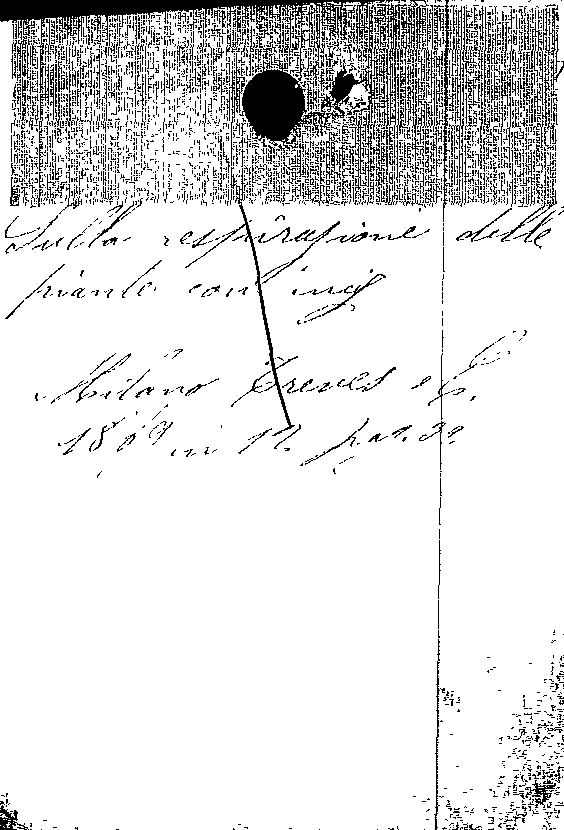 Sulla respirazione delle
piante con incis
Milano Treves e C.
1869 in 12. pag. 32